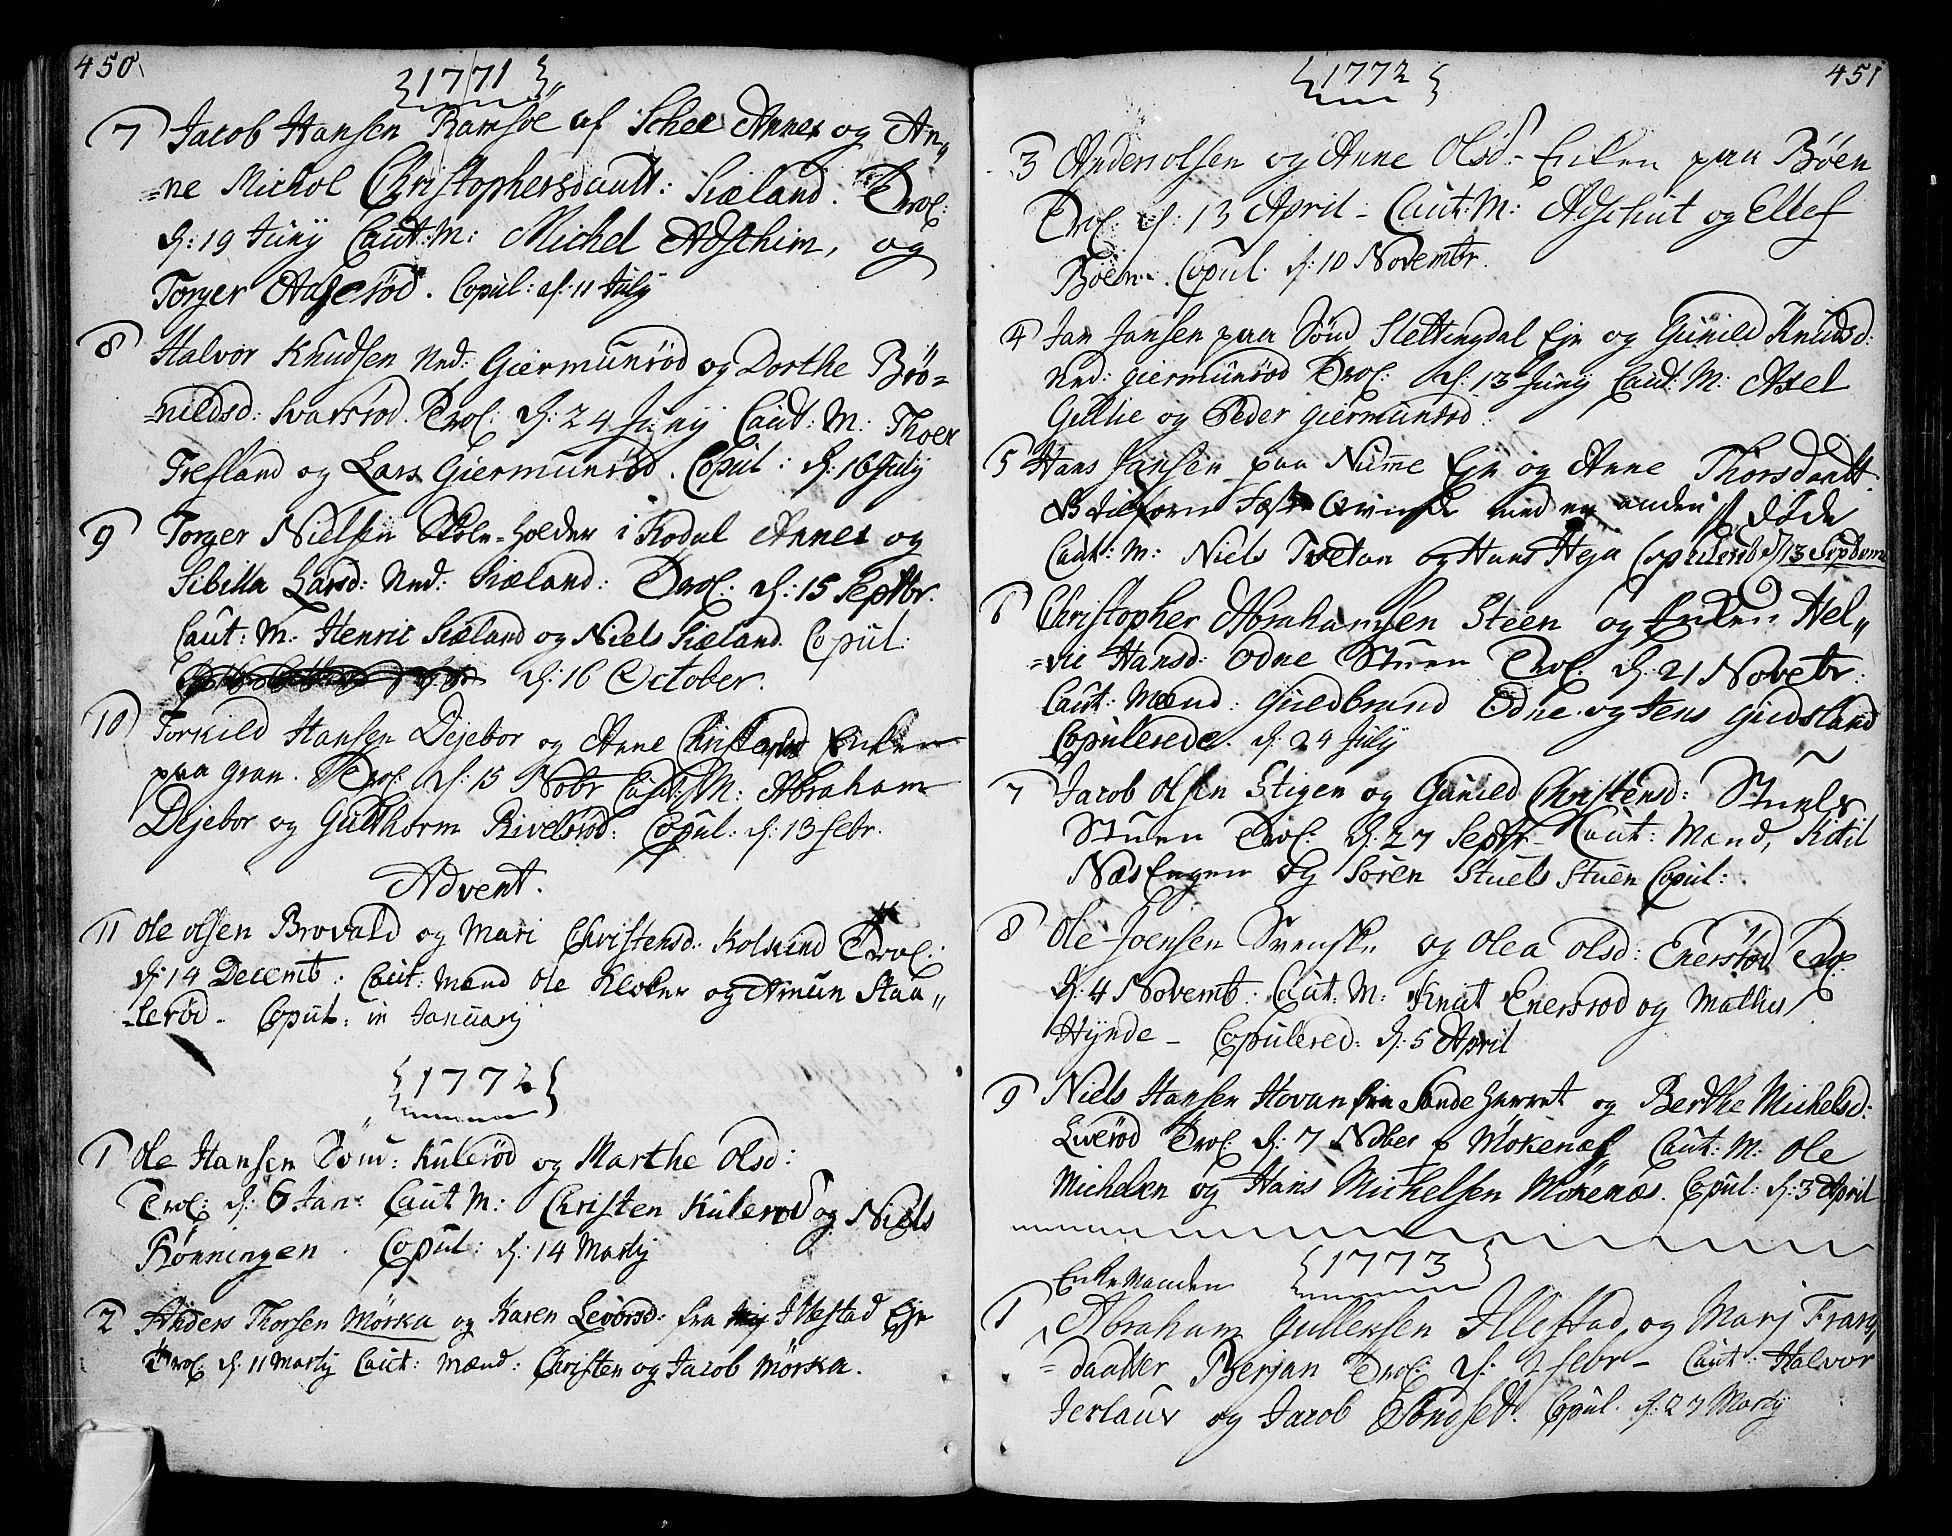 450
1771
7 Jacob Hansen Ramsöe af Schee Annex og An„
=ne Michol Christophersdautt: Siæland. Trol:
d: 19 Juny Caut: M: Michel Adsthim, og
Torger Aaseröd. Copul: d: 11 July
8 Halvor Knudsen Ned: Giermunröd og Dorthe Brö=
=nildsd: Svarsrod. Trol: d: 24 Juny Caut: M: Thoer
Trefland og Lars Giermunröd. Copul: d: 16 July
9 Torger Nielsen Skole-holder i Kodal Annex og
Sibilla Larsd: Ned: Siæland: Trol: d: 15 Septbr.
Caut: M. Henric Siæland og Niels Siæland. Copul:
d: 16 October.
10 Torkild Hansen Dejebor og Anne Enken
paa Gran. Trol: d: 15 Nobr Caut: M: Abraham
Dejebor og Gulthorm Rivelsröd: Copul: d: 13 Febr.
Advent.
11 Ole Olsen Brovald og Mari Christensd. Kolsund Trol:
d: 14 Decemb: Caut: Mænd Ole Kloker og Amun Staa„
=leröd. Copul: in Januarj
1772
1 Ole Hansen Sönd: Kuleröd og Marthe Olsd:
Trol: d: 6 Jan: Caut M: Christen Kuleröd og Niels
Rönningen. Copul: d: 14 Martj
2 Anders Thorsen Mörka og Karen Levorsd: fra Illestad Eje
Trol: d: 11 Martj Caut: Mænd: Christen og Jacob Mörka.
1772
451
3 Anders Olsen og Anne Olsd- Enken paa Böen
Trol: d: 13 April - Caut: M: Adschut og Ellef
Böen. Copul. d: 10 Novembr.
4 Jan Jansen paa Sönd Slettingdal Eje og Gunild Knudsd:
Ned: Giermunröd Trol: d: 13 Juny Caut: M: Axel
Gillie og Peder Giermundröd.
5 Hans Jansen paa Numme Eje og Anne Thorsdautt.
med en anden döde
Caut: M: Niels Tvetan og Hans Heja Copulered d: 13 Septem
6 Christopher Abrahamsen Steen og Enken Hel„
=vic Hansd: Odne Stuen Trol. d: 21 Novebr.
Caut: Mænd: Guldbrand Odne og Jens Gudsland
Copulerede. d: 24 July
7 Jacob Olsen Stigen og Gunild Christensd: Stuels
Stuen Trol. d: 27 Septbr- Caut: Mænd, Kitil
Næs Engen og Sören Stuels Stuen Copul:
8 Ole Joensen Svenske og Olea Olsd: Enersröd Trol:
d: 4 Novemb: Caut: M: Knut Enersröd og Mathis
Hynde - Copulered: d: 5 April
9 Niels Hansen Hovan fra Sande Herret og Berthe Michelsd:
Liveröd Trol. d: 7 Nober Mökenæs Caut: M: Ole
Michelsen og Hans Michelsen Mökenæs. Copul: d: 3 April
1773
Enke Manden
1 Abraham Gullensen Illestad og Marj Frans„
=daatter Berjan Trol: d: 2 Febr- Caut: Halvor
Jerlaus og Jacob Copul. d: 27 Martj